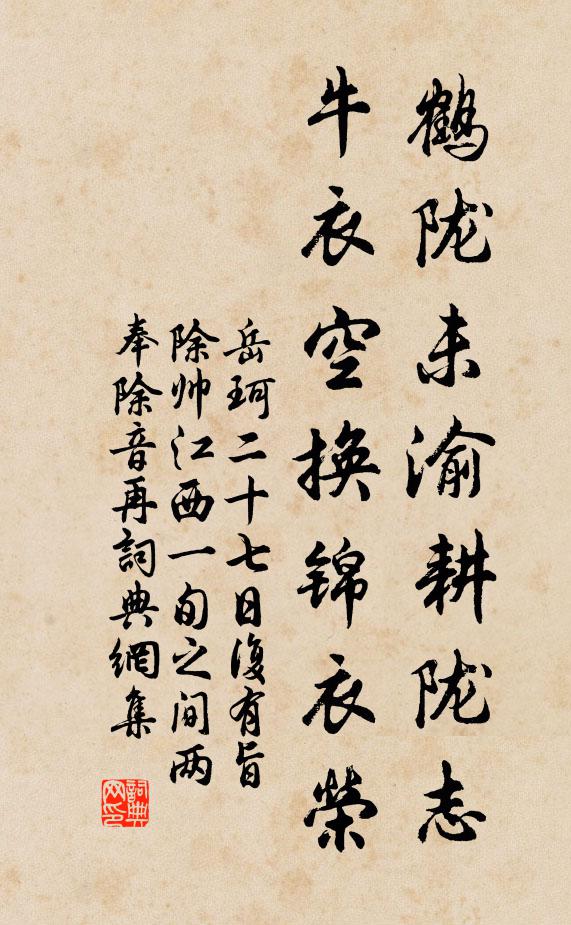 鹤陇未渝耕陇志
牛衣空换锦衣荣
岳珂二十七日復有旨
除帅江西一旬之间两
奉除音再詞典網集
詞典
网印